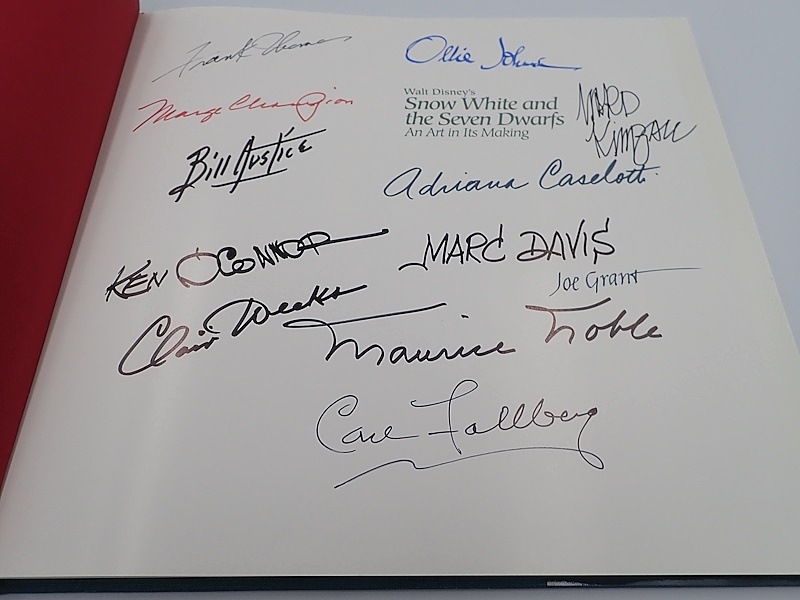 Frank Thomas
Ollie Johnston
Marge Champion
Walt Disney's
Snow White and
the Seven Dwarfs
An Art in Its Making
WARD
KIMBALL
Bill Justice
Adriana Caselotti
KEN O'CONNOR
MARC DAVIS
Joe Grant
Clair Weeks
Maurice Noble
Carl Fallberg